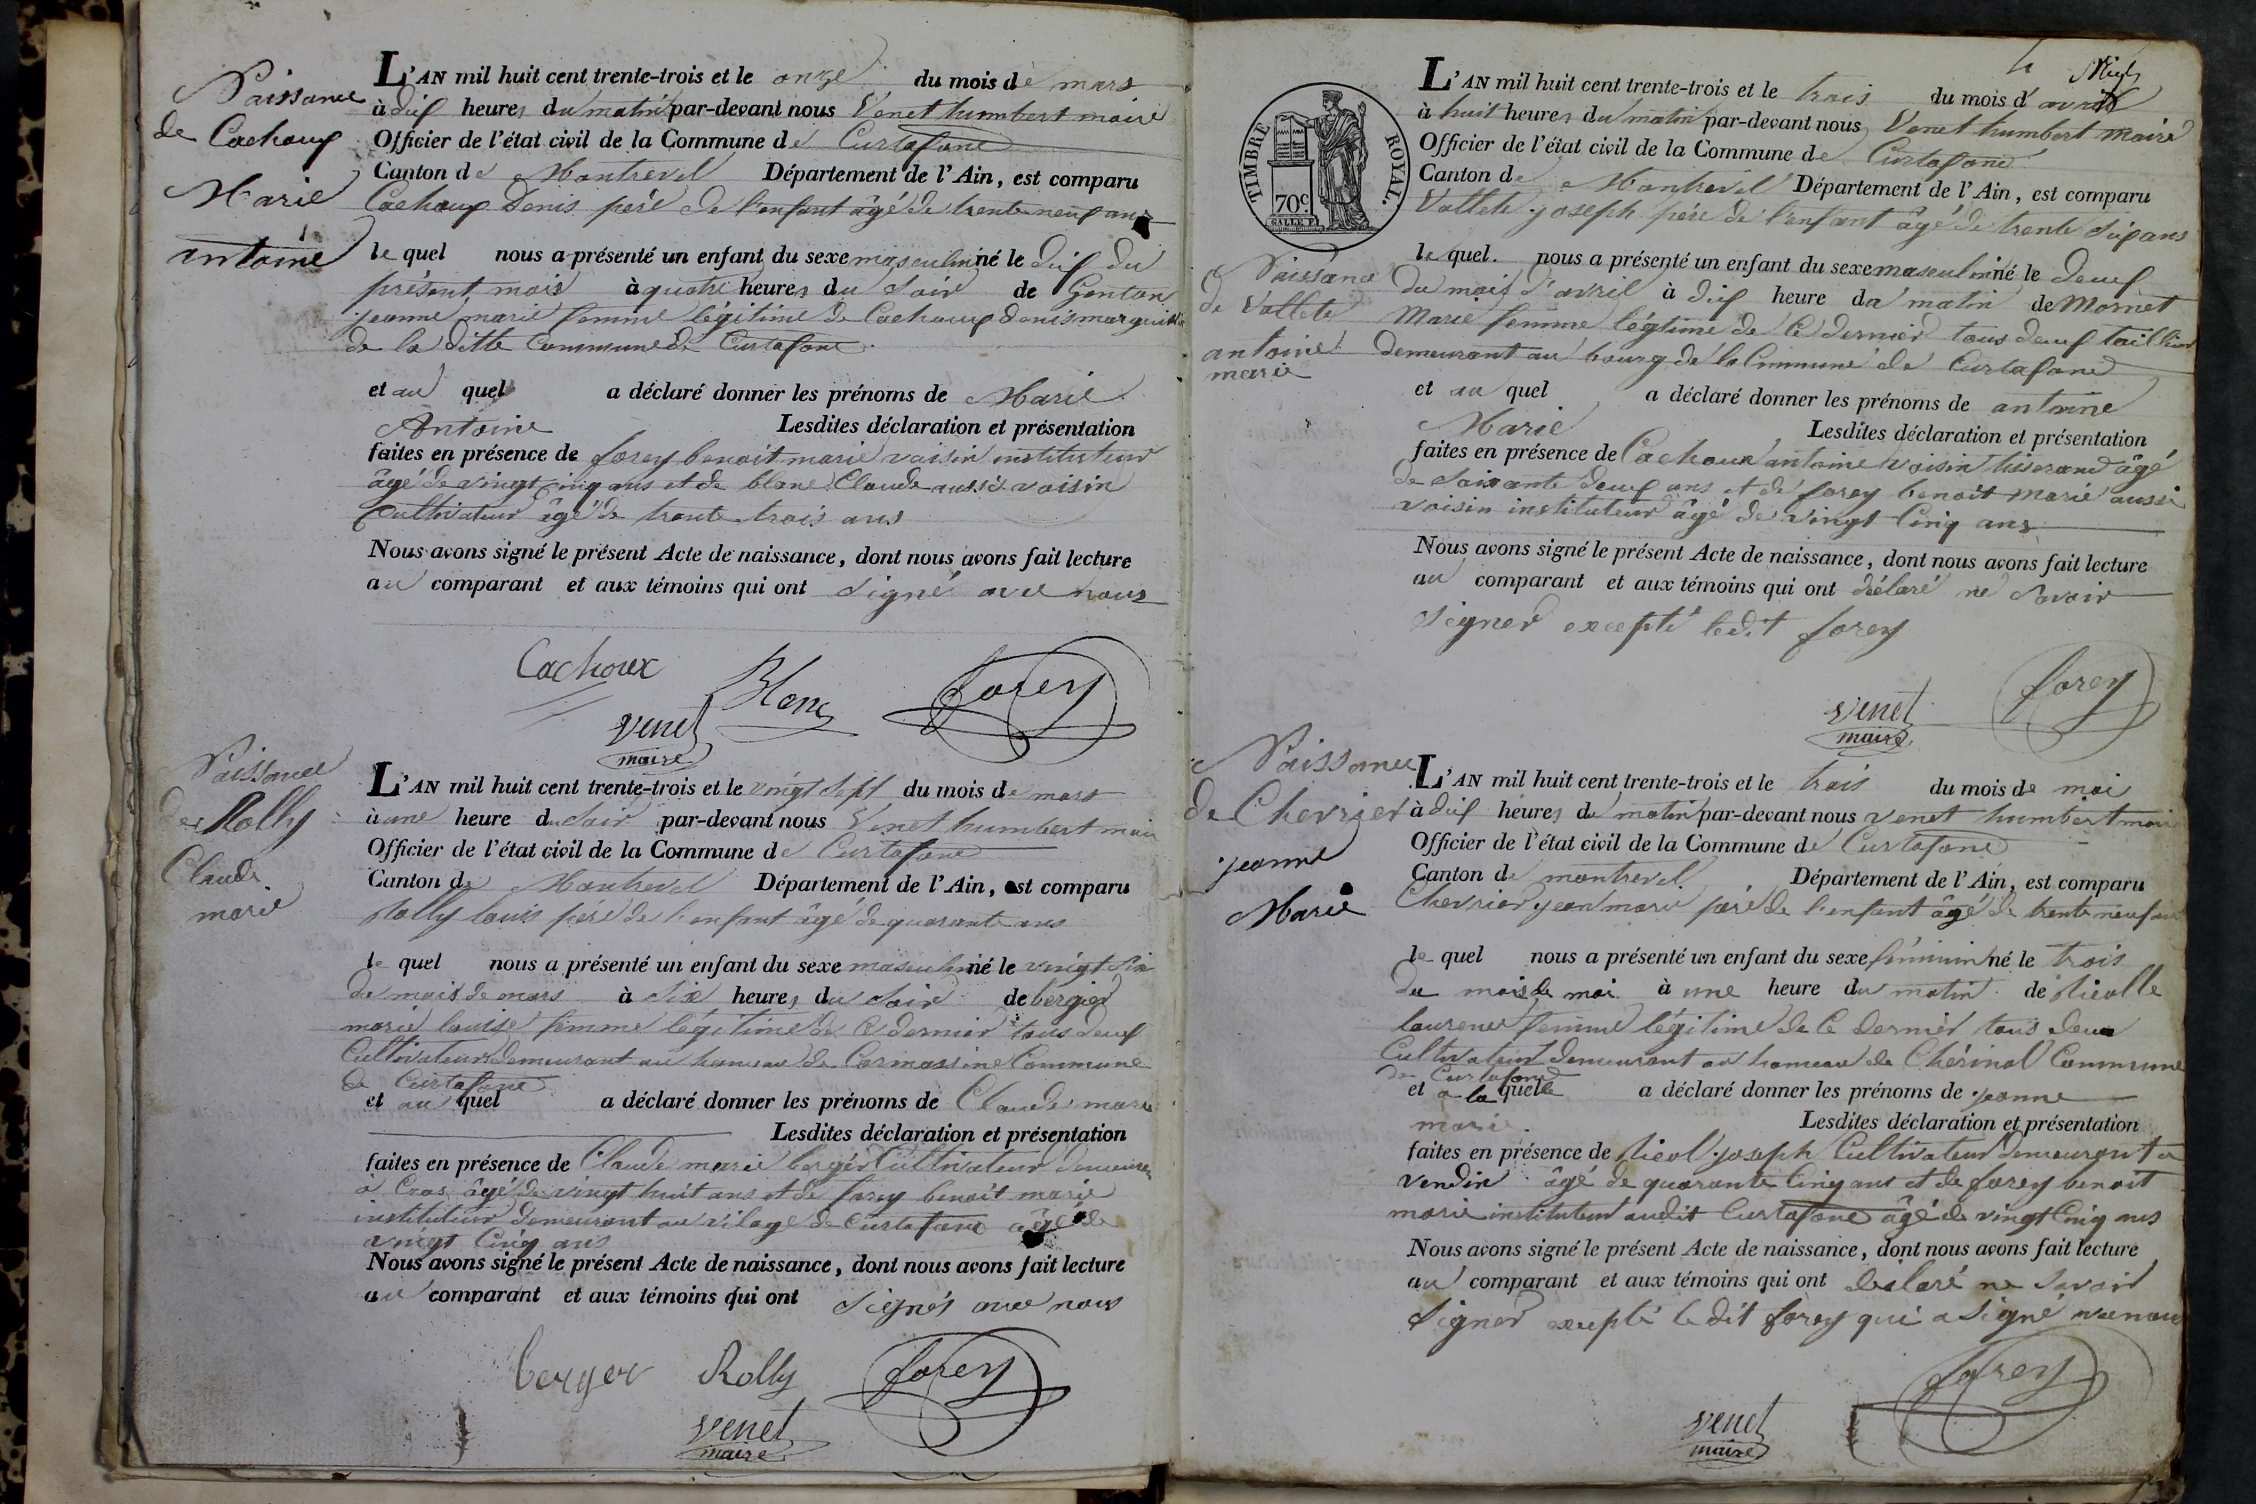 Naissance
de Cachoux
Marie
antoine
L'AN mil huit cent trente-trois et le onze du mois de mars
à dix heures du matin par-devant nous Venet humbert maire
Officier de l'état civil de la Commune de Curtafond
Canton de Montrevel Département de l'Ain, est comparu
Cachoux Denis père de l'enfant âgé de trente neuf ans
le quel nous a présenté un enfant du sexe masculin né le dix du
présent mois à quatre heures du soir de Gonton
jeanne marie femme légitime de Cachoux denis
de la ditte Commune de Curtafond
et au quel a déclaré donner les prénoms de Marie
Antoine Lesdites déclaration et présentation
faites en présence de forey benoit marie voisin instituteur
âgé de vingt cinq ans et de blanc Claude aussi voisin
Cultivateur âgé de trente trois ans
Nous avons signé le présent Acte de naissance, dont nous avons fait lecture
au comparant et aux témoins qui ont signé avec nous
Cachoux Blanc forey
venet
maire
Naissance
de Rolly
Claude
marie
L'AN mil huit cent trente-trois et le vingt sept du mois de mars
à une heure du soir par-devant nous Venet humbert maire
Officier de l'état civil de la Commune de Curtafond
Canton de Montrevel Département de l'Ain, est comparu
Rolly louis père de l'enfant âgé de quarante ans
le quel nous a présenté un enfant du sexe masculin né le vingt six
du mois de mars à six heures du soir de berger
marie louise femme légitime de Ce dernier tous deux
Cultivateurs demeurant au hameau de Commune
de Curtafond
et au quel a déclaré donner les prénoms de Claude marie
Lesdites déclaration et présentation
faites en présence de Claude marie berger Cultivateur demeurant
à Cras âgé de vingt huit ans et de forey benoit marie
instituteur demeurant au vilage de Curtafond âgé de
vingt Cinq ans
Nous avons signé le présent Acte de naissance, dont nous avons fait lecture
au comparant et aux témoins qui ont signés avec nous
berger Rolly forey
venet
maire
4
TIMBRE ROYAL.
70c.
L'AN mil huit cent trente-trois et le trois du mois d'avril
à huit heures du matin par-devant nous Venet humbert maire
Officier de l'état civil de la Commune de Curtafond
Canton de Montrevel Département de l'Ain, est comparu
Vallete joseph père de l'enfant âgé de trente six ans
Naissance
de Vallete
antoine
marie
le quel nous a présenté un enfant du sexe masculin né le deux
du mois d'avril à dix heure du matin de Mornet
Marie femme légitime de Ce dernier tous deux
demeurant au bourg de la Commune de Curtafond
et au quel a déclaré donner les prénoms de antoine
Marie Lesdites déclaration et présentation
faites en présence de Cachoux antoine voisin tiserand âgé
de soixante deux ans et de forey benoit marie aussi
voisin instituteur âgé de vingt Cinq ans
Nous avons signé le présent Acte de naissance, dont nous avons fait lecture
au comparant et aux témoins qui ont déclaré ne Savoir
signer excepté ledit forey
venet forey
maire
Naissance
de Chevrier
jeanne
Marie
L'AN mil huit cent trente-trois et le trois du mois de mai
à dix heures du matin par-devant nous venet humbert maire
Officier de l'état civil de la Commune de Curtafond
Canton de montrevel Département de l'Ain, est comparu
Chevrier jean marie père de l'enfant âgé de trente neuf ans
le quel nous a présenté un enfant du sexe féminin né le trois
du mois de mai à une heure du matin de
laurence femme légitime de Ce dernier tous deux
Cultivateur demeurant au hameau de Commune
de Curtafond
et a la quelle a déclaré donner les prénoms de jeanne
marie. Lesdites déclaration et présentation
faites en présence de joseph Cultivateur demeurant a
âgé de quarante Cinq ans et de forey benoit
marie instituteur audit Curtafond âgé de vingt Cinq ans
Nous avons signé le présent Acte de naissance, dont nous avons fait lecture
au comparant et aux témoins qui ont déclaré ne Savoir
Signer excepté le dit forey qui a Signé avec nous
venet forey
maire